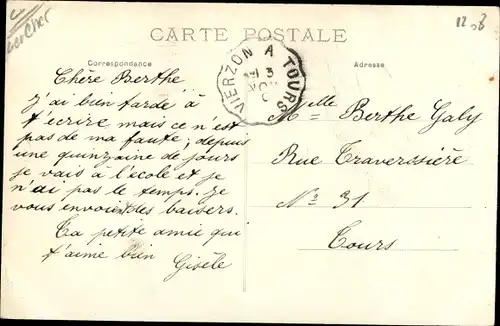 CARTE POSTALE
Correspondance
Adresse
VIERZON A TOURS
Chère Berthe
J'ai bien tardé à
t'ecrire mais ce n'est
pas de ma faute; depuis
une quinzaine de jours
je vais à l'ecole et je
n'ai pas le temps. Je
vous envoie des baisers.
Ta petite amie qui
t'aime bien
Gisèle
Melle Berthe Galy
Rue Traverssière
No 31
Tours